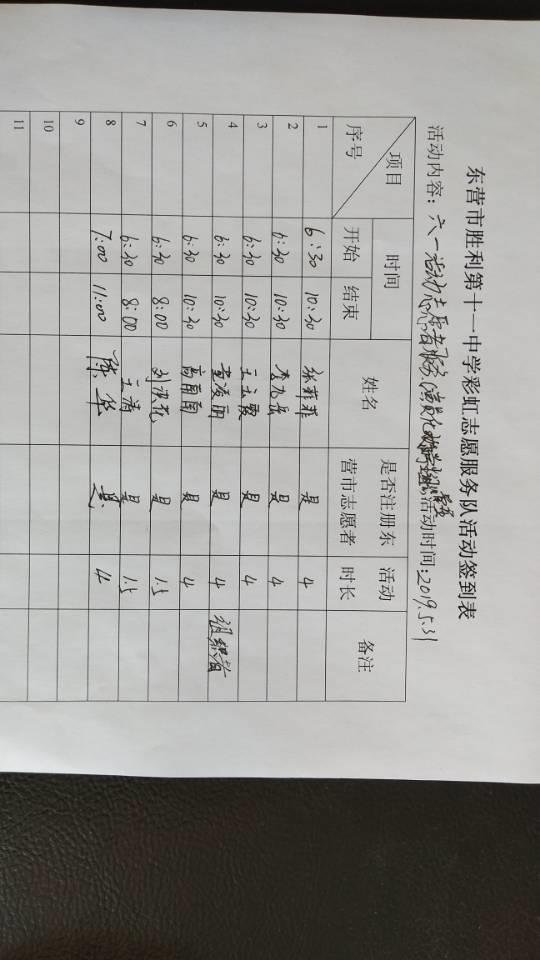 东营市胜利第十一中学彩虹志愿服务队活动签到表
活动内容：六一活动志愿者服务 活动时间：2019.5.31
项目 序号 时间 姓名 是否注册东营市志愿者 活动时长 备注
开始 结束
1 6:30 10:30 徐菲菲 是 4
2 6:30 10:30 李 是 4
3 6:30 10:30 王云霞 是 4
4 6:30 10:30 黄 丽 是 4 组织者
5 6:30 10:30 高丽国 是 4
6 6:30 8:00 刘洪花 是 1.5
7 6:30 8:00 王清 是 1.5
8 7:00 11:00 陈华 是 4
9
10
11